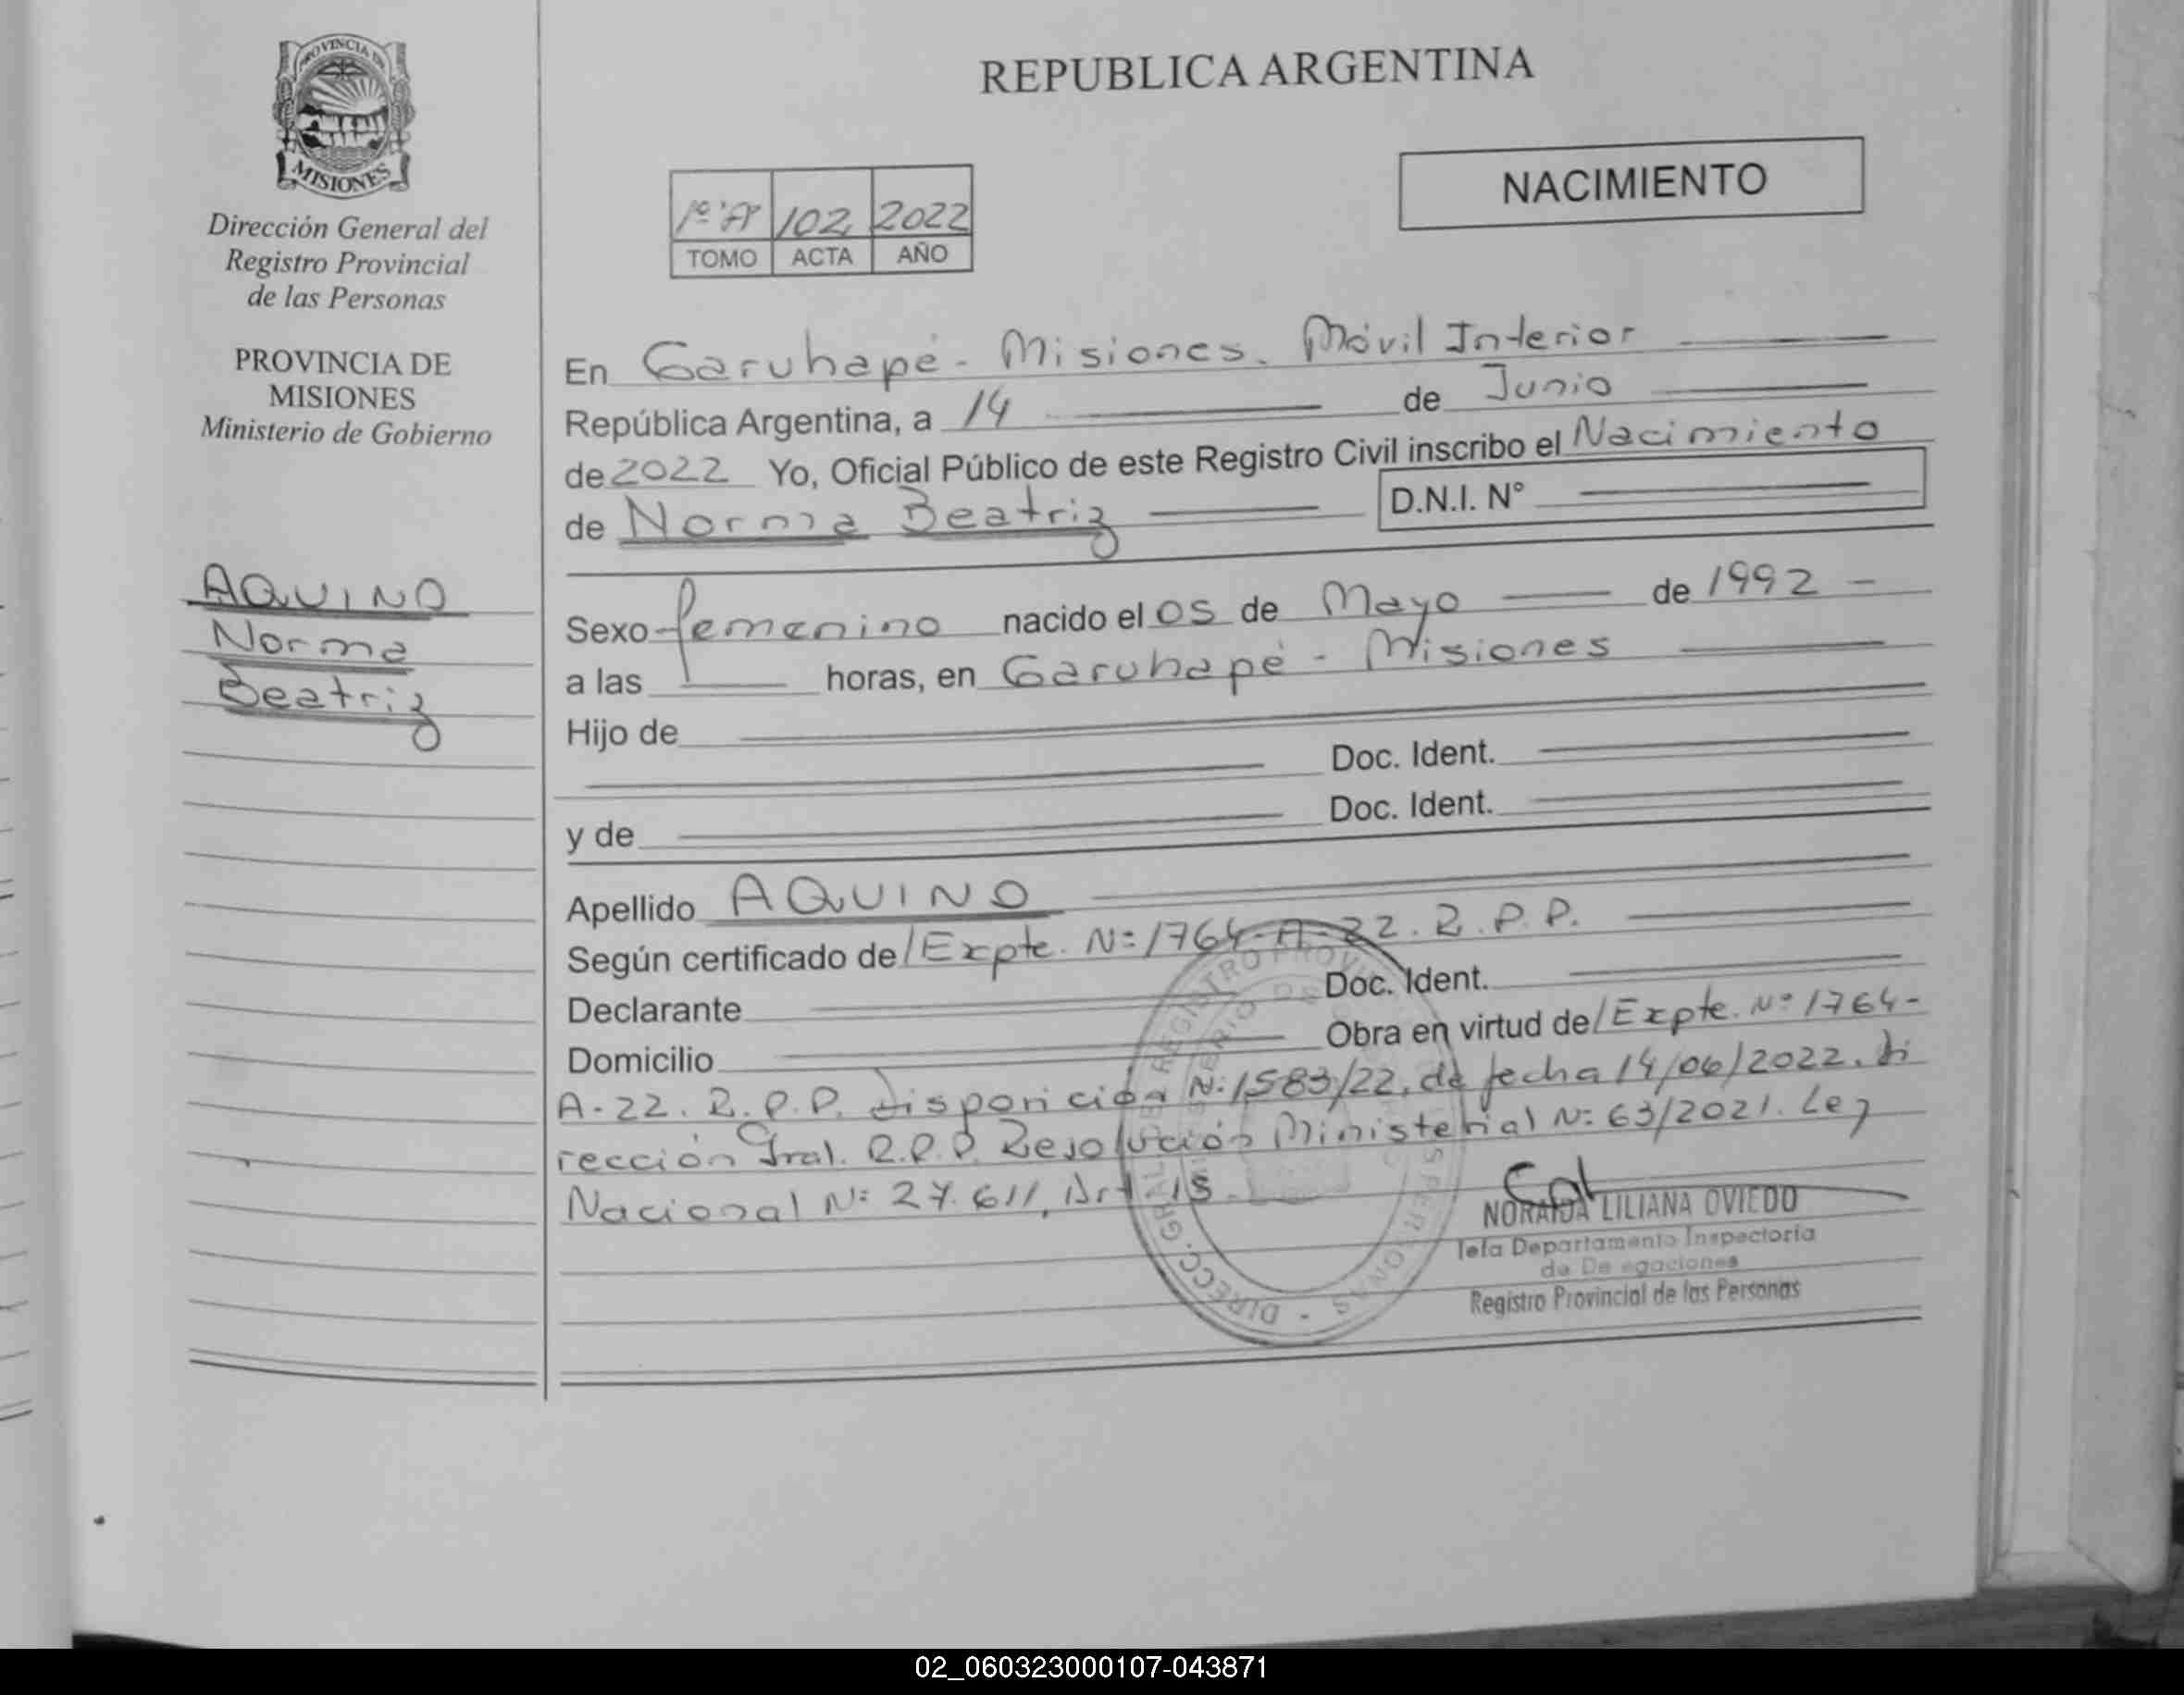 PROVINCIA DE
MISIONES
Dirección General del
Registro Provincial
de las Personas
PROVINCIA DE
MISIONES
Ministerio de Gobierno
AQUINO
Norma
Beatriz
REPUBLICA ARGENTINA
NACIMIENTO
1º "A" 102 2022
TOMO ACTA AÑO
En Garuhapé - Misiones. Móvil Interior
República Argentina, a 14 de Junio
de 2022 Yo, Oficial Público de este Registro Civil inscribo el Nacimiento
de Norma Beatriz D.N.I. N°
Sexo femenino nacido el 05 de Mayo de 1992 -
a las horas, en Garuhapé - Misiones
Hijo de
Doc. Ident.
y de Doc. Ident.
Apellido AQUINO
Según certificado de/Expte. Nº 1764-A-22. R.P.P.
Declarante Doc. Ident.
Domicilio Obra en virtud de/Expte. Nº 1764-
A-22. R.P.P. Disposición Nº 1583/22, de fecha 14/06/2022. Di
rección Gral. R.P.P. Resolución Ministerial Nº 63/2021. Ley
Nacional Nº 27.611, Art. 15.
NORAIDA LILIANA OVIEDO
Jefa Departamento Inspectoria
de Delegaciones
Registro Provincial de las Personas
DIRECC. GRAL. DEL REGISTRO PROV. DE LAS PERSONAS
02_060323000107-043871